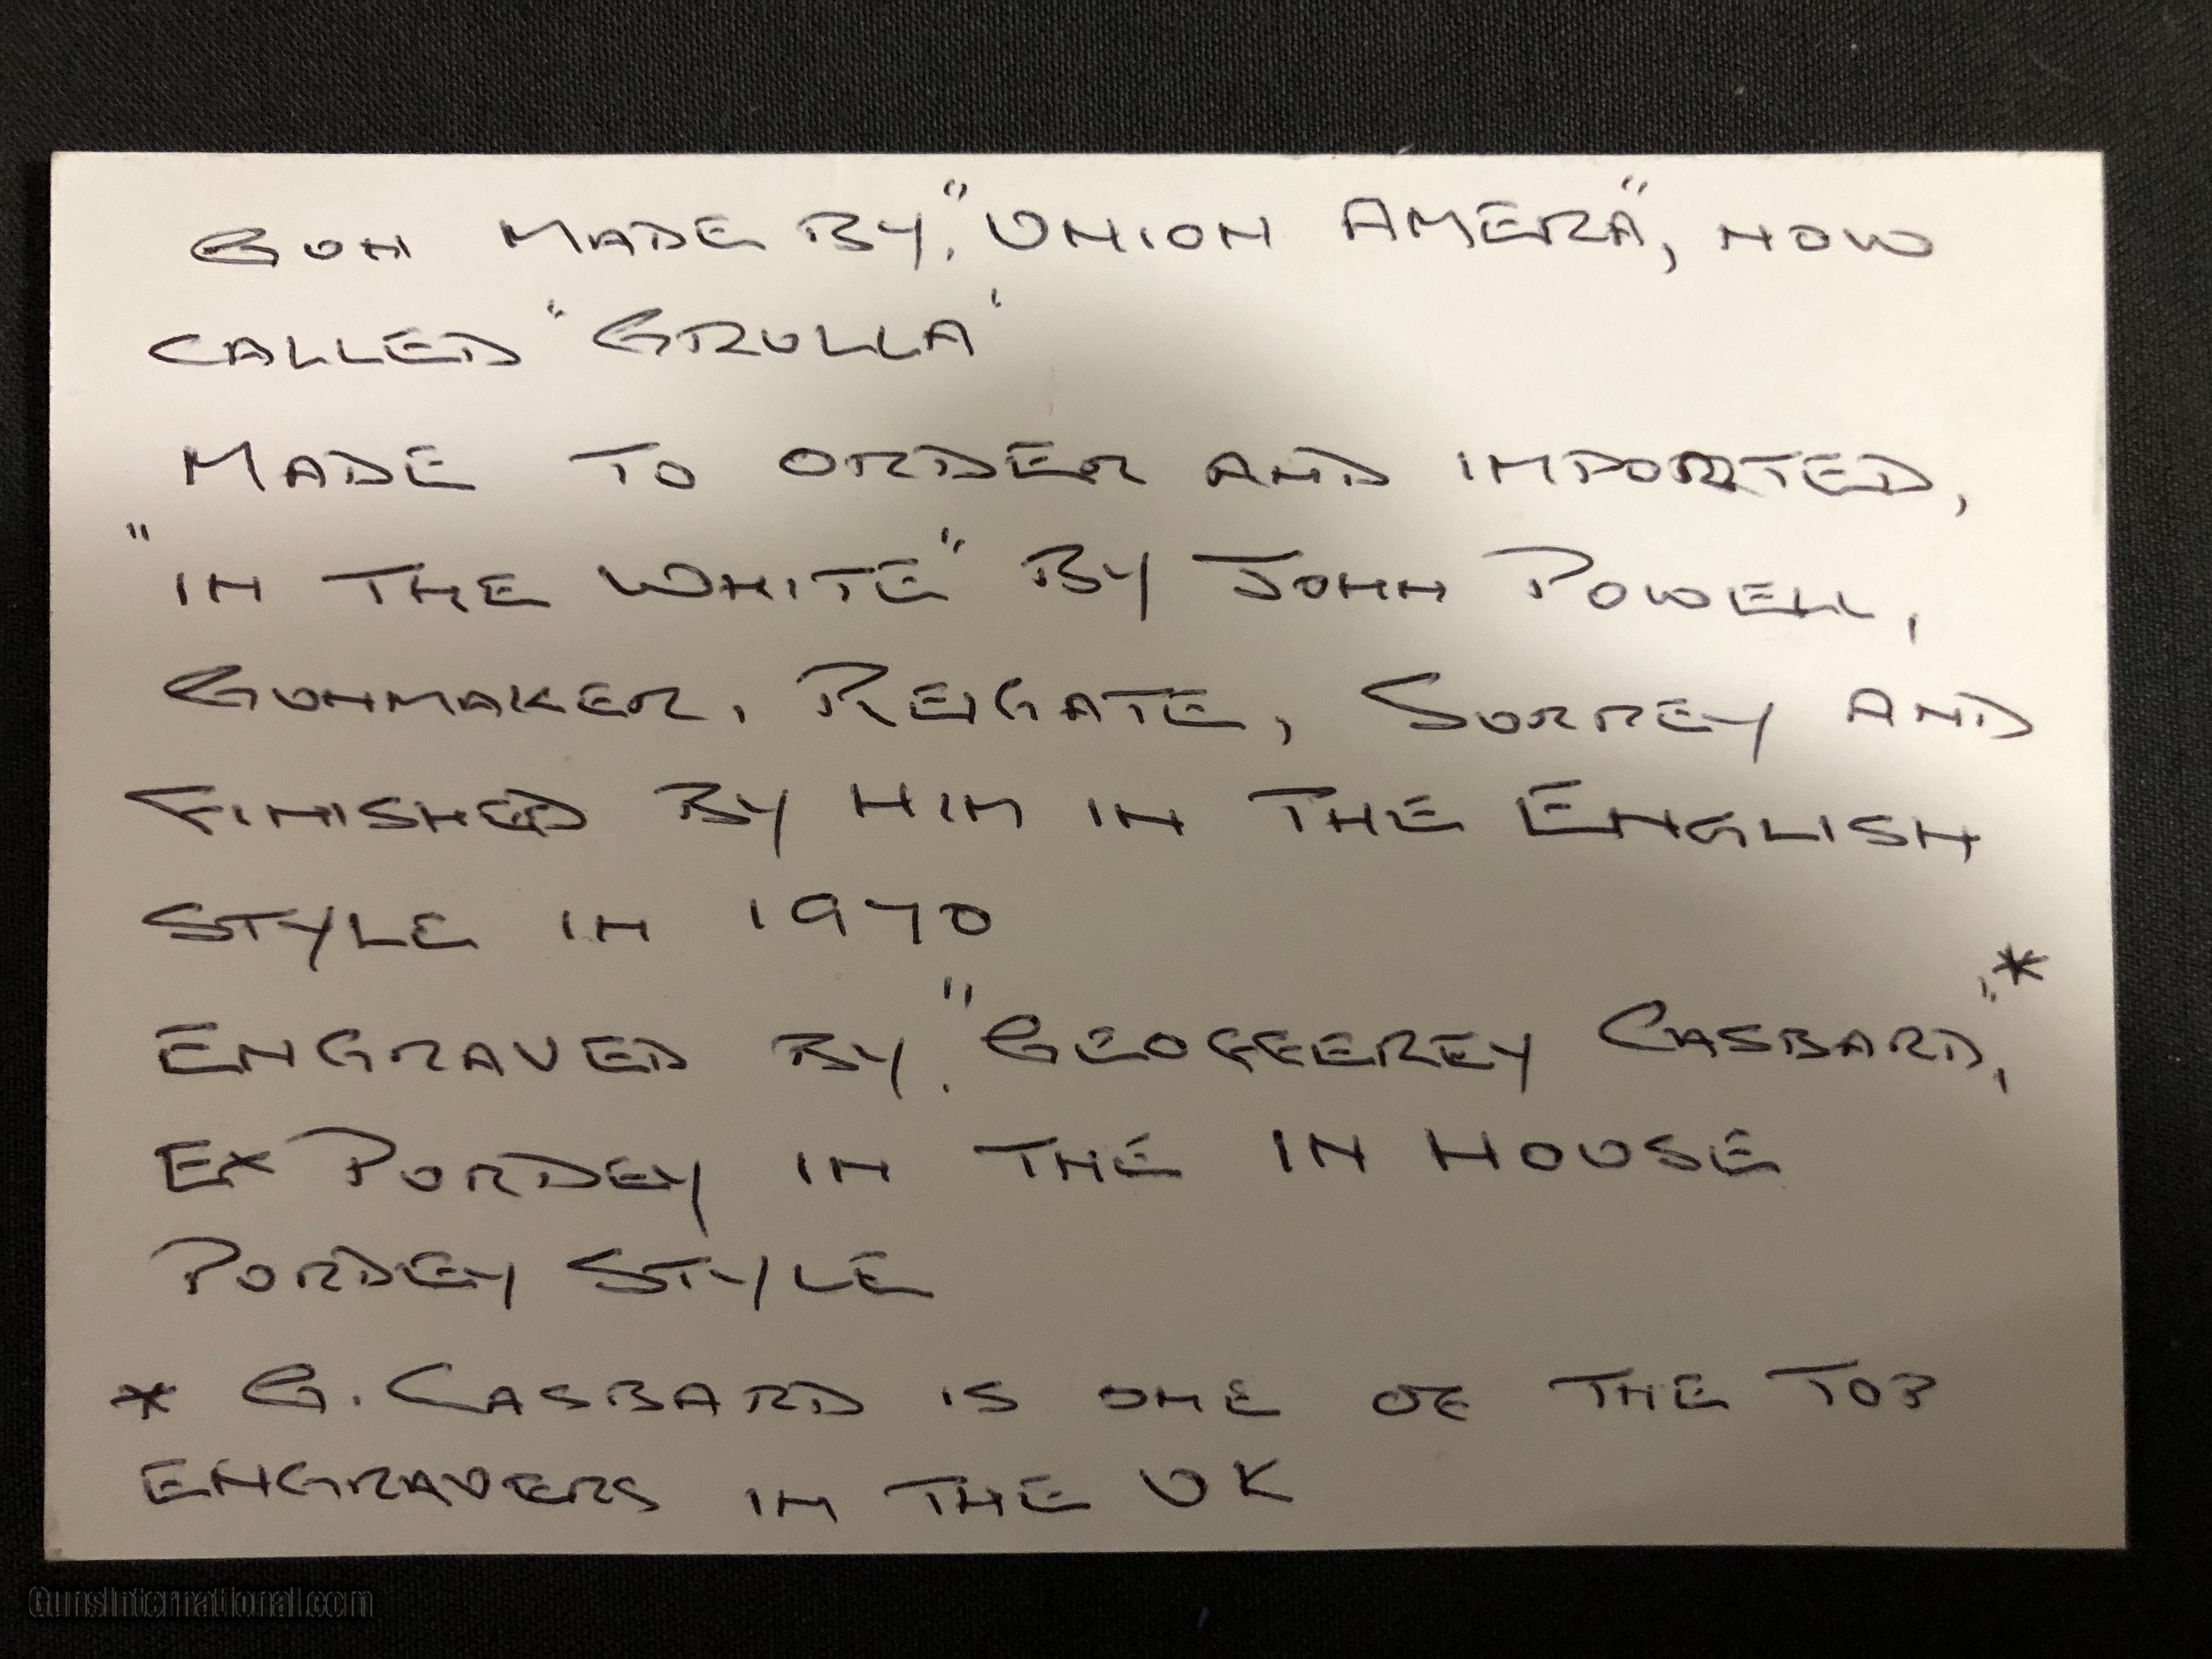 GUN MADE BY, "UNION AMERA", NOW
CALLED "GRULLA"
MADE TO ORDER AND IMPORTED,
"IN THE WHITE" BY JOHN POWELL,
GUNMAKER, REIGATE, SURREY AND
FINISHED BY HIM IN THE ENGLISH
STYLE IN 1970
ENGRAVED BY, "GEOFFEREY CASBARD,"*
EX PURDEY IN THE IN HOUSE
PURDEY STYLE
* G. CASBARD IS ONE OF THE TOP
ENGRAVERS IN THE UK
GunsInternational.com